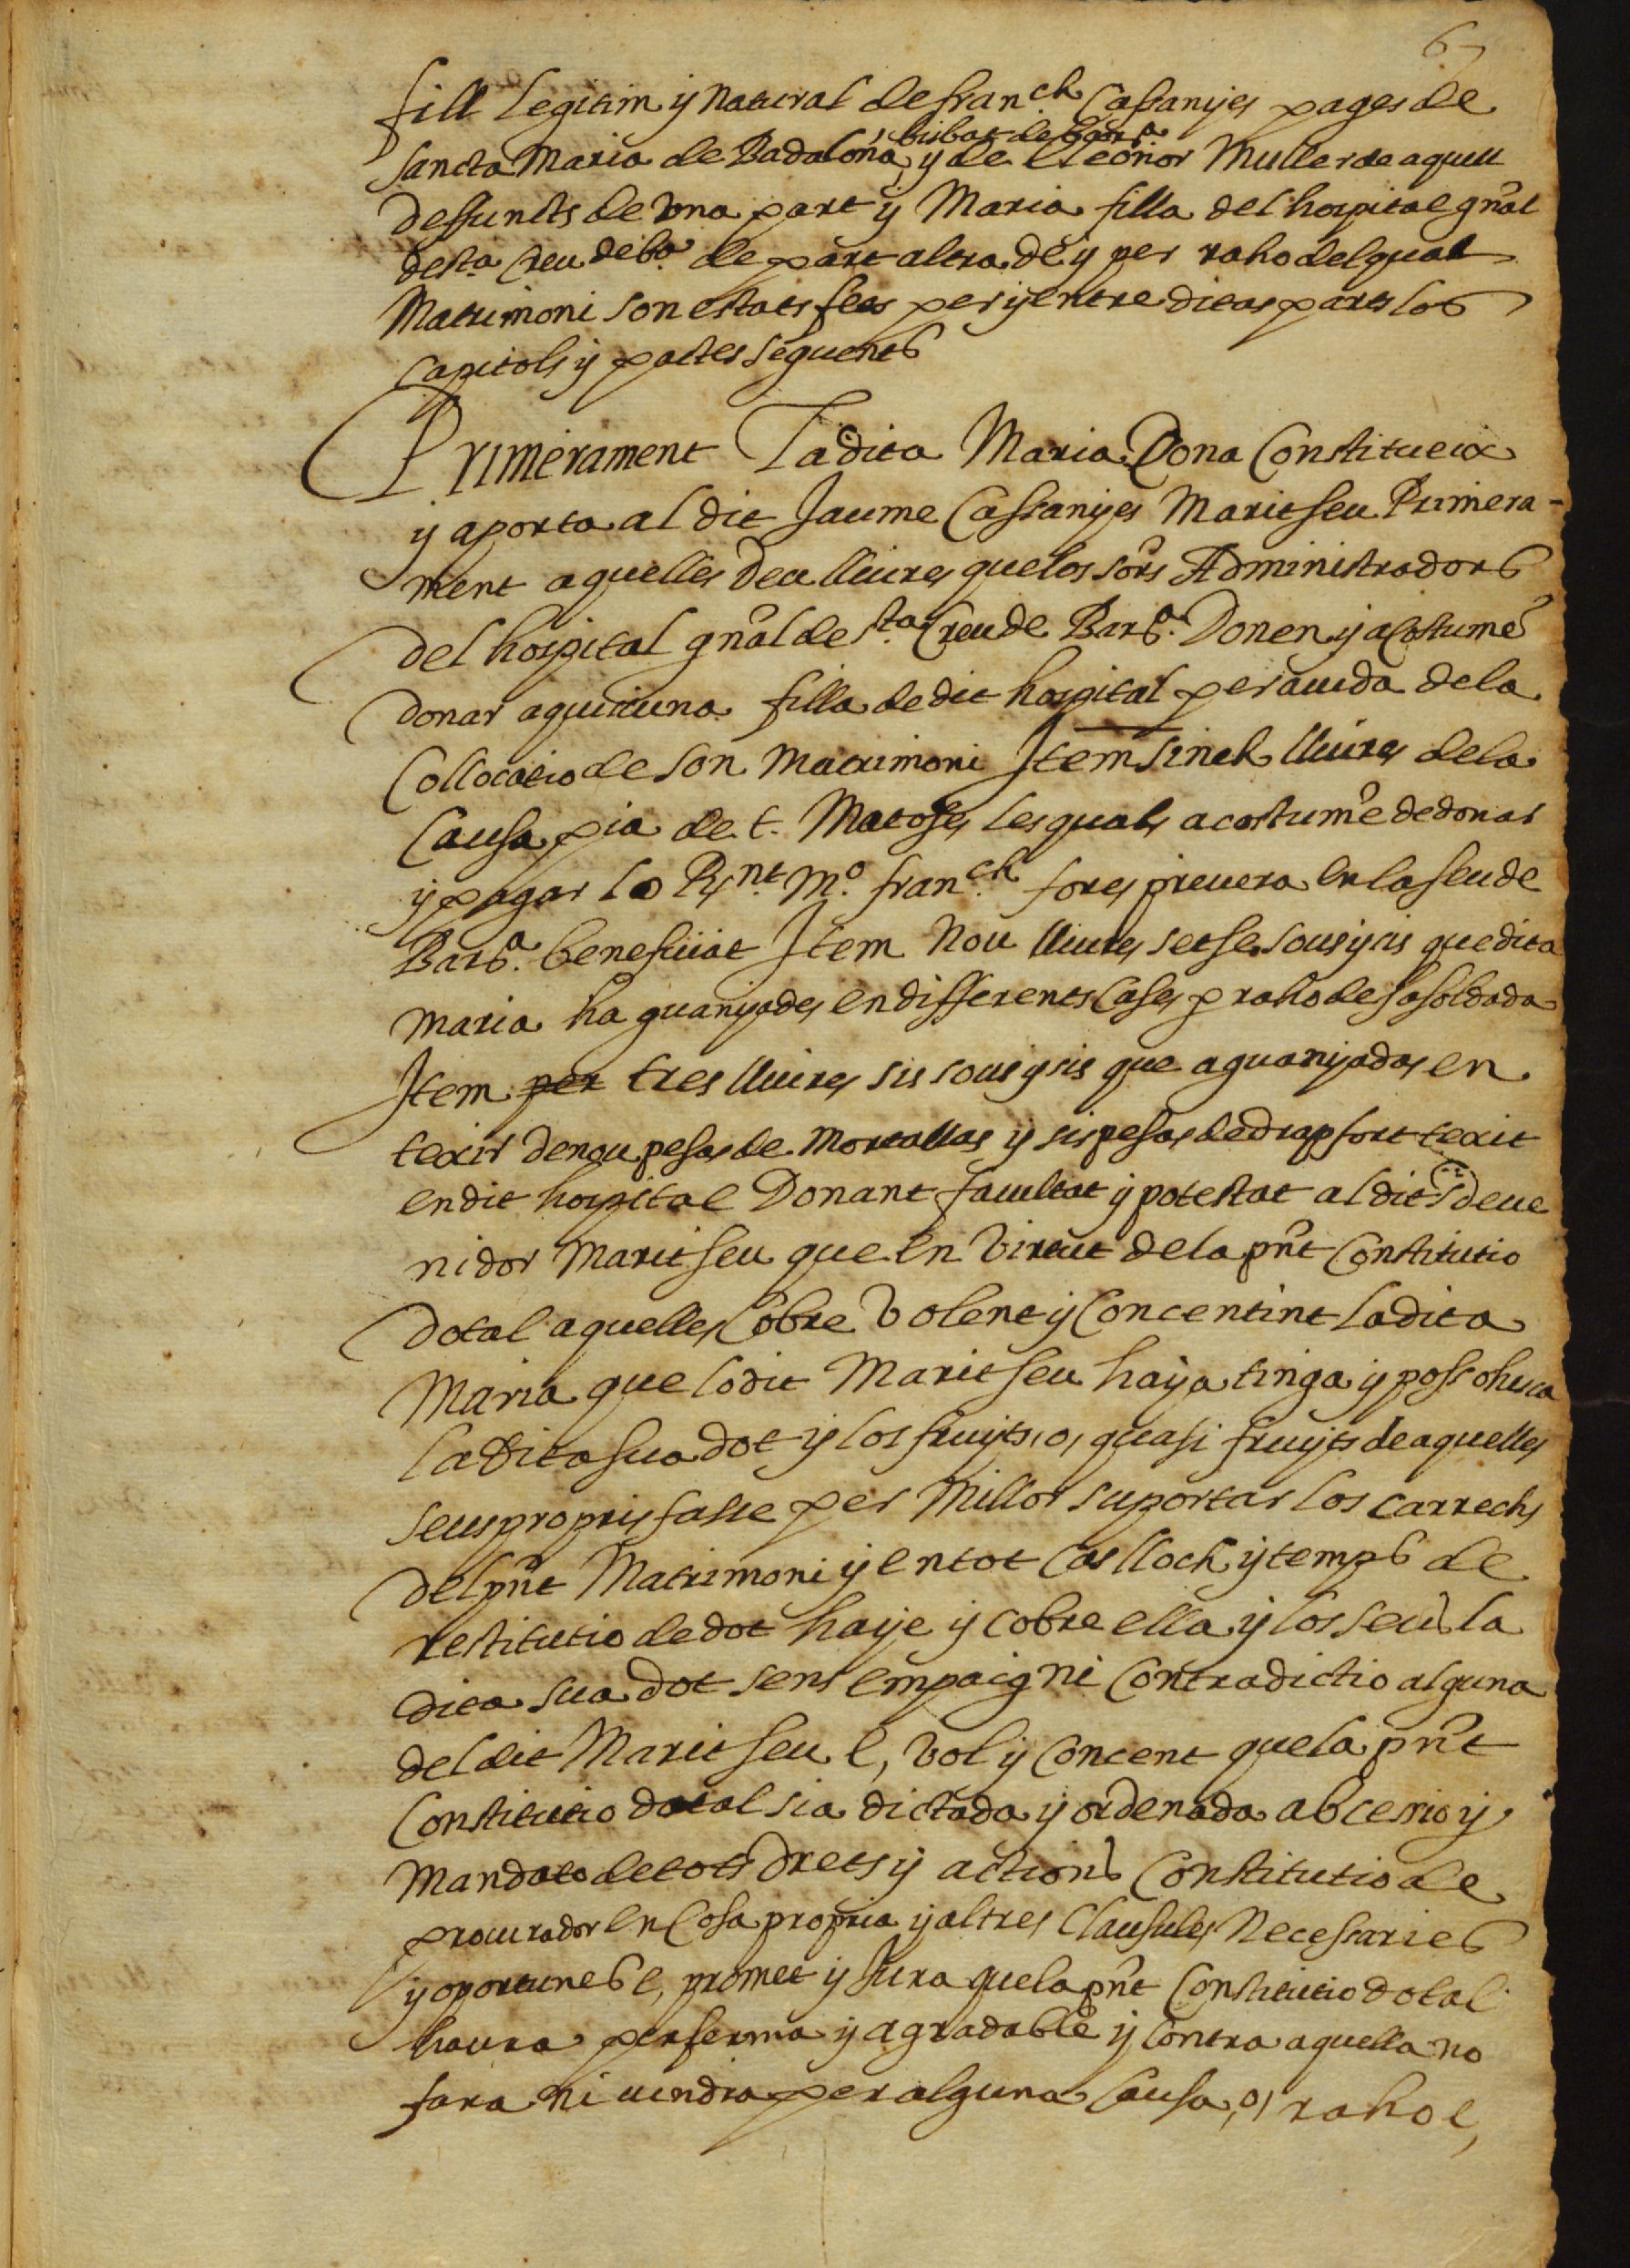 67
fill legitim y natural de fran.ch Cassanyes pages de
bisbat de Bar.a
Sancta Maria de Badalona, y de Eleonor Muller de aquell
deffuncts de una part y Maria filla del hospital gñal
de s.ta Creu de b.a de part altra. De y per raho del qual
Matrimoni son estats fets per y entre ditas parts los
capitols y pactes seguents
Primerament La dita Maria Dona Constitueix
y aporta al dit Jaume Cassanyes Marit seu Primera-
ment aquelles deu lliures que los sõrs Administradors
del hospital gñal de S.ta Creu de Bar.a Donen y acostumẽ
donar a quiscuna filla de dit hospital per aiuda de la
Collocatio de son Matrimoni Item sinch lliures de la
Causa pia de t. Matoses les quals acostumẽ de donar
y pagar lo R.nt M.o fran.ch fores prevere en la seu de
Bar.a beneficiat Item Nou lliures setse sous y sis que dita
Maria ha guanyades en differents Cases p raho de sa soldada
Item per tres lliures sis sous y sis que a guanyadas en
texir de nou pesas de Mortallas y sis pesas de drap fort texit
en dit hospital Donant facultat y potestat al dit sdeve
nidor Marit seu que en Virtut de la pñt Constitutio
dotal aquelles Cobre Volent y Concentint la dita
Maria que lo dit Marit seu haya tinga y possohesca
la dita sua dot y los fruyts, o, quasi fruyts de aquelles
seus propris fasse per Millor suportar los carrechs
del pñt Matrimoni y en tot Cas lloch y temps de
restitutio de dot haye y cobre ella y los seus la
dita sua dot sens empaig ni Contradictio alguna
del dit Marit seu E, Vol y Concent que la pñt
Constitutio dotal sia dictada y ordenada ab cessio y
Mandato de tots drets y actions Constitutio de
procurador en Cosa propria y altres Clausules Necessaries
y oportunes E, promet y Jura que la pñt Constitutio dotal
haura per ferma y agradable y Contra aquella no
fara ni vindra per alguna Causa, o, raho E,